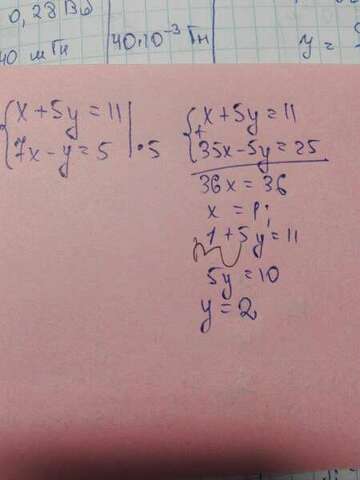 0,28 Вб
40 мГн
40·10⁻³ Гн
y =
{ x + 5y = 11
{ 7x - y = 5 | · 5
{ x + 5y = 11
+
{ 35x - 5y = 25
36x = 36
x = 1;
1 + 5y = 11
5y = 10
y = 2